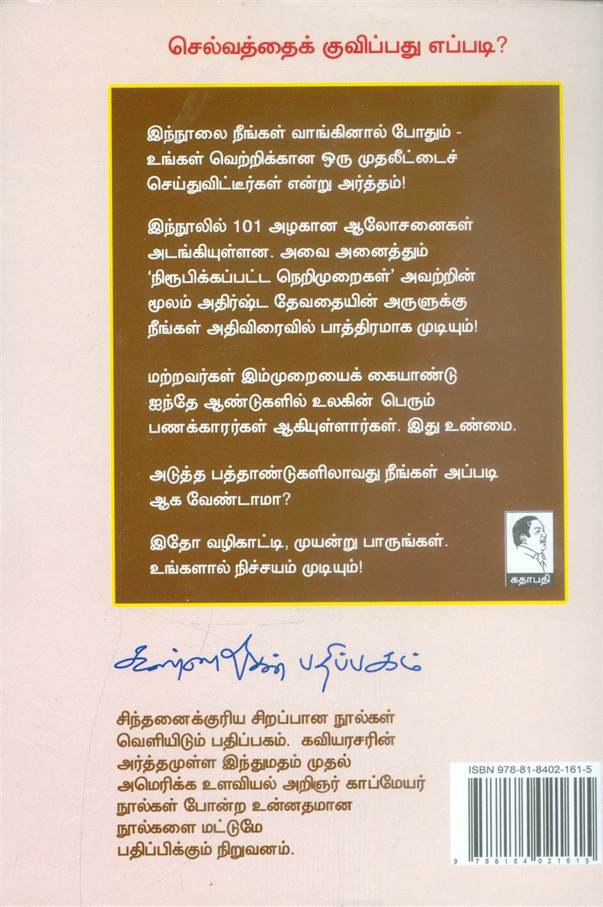 செல்வத்தைக் குவிப்பது எப்படி?
இந்நூலை நீங்கள் வாங்கினால் போதும் -
உங்கள் வெற்றிக்கான ஒரு முதலீட்டைச்
செய்துவிட்டீர்கள் என்று அர்த்தம்!
இந்நூலில் 101 அழகான ஆலோசனைகள்
அடங்கியுள்ளன. அவை அனைத்தும்
‘நிரூபிக்கப்பட்ட நெறிமுறைகள்’ அவற்றின்
மூலம் அதிர்ஷ்ட தேவதையின் அருளுக்கு
நீங்கள் அதிவிரைவில் பாத்திரமாக முடியும்!
மற்றவர்கள் இம்முறையைக் கையாண்டு
ஐந்தே ஆண்டுகளில் உலகின் பெரும்
பணக்காரர்கள் ஆகியுள்ளார்கள். இது உண்மை.
அடுத்த பத்தாண்டுகளிலாவது நீங்கள் அப்படி
ஆக வேண்டாமா?
இதோ வழிகாட்டி, முயன்று பாருங்கள்.
உங்களால் நிச்சயம் முடியும்!
கதாபதி
கண்ணதாசன் பதிப்பகம்
சிந்தனைக்குரிய சிறப்பான நூல்கள்
வெளியிடும் பதிப்பகம். கவியரசரின்
அர்த்தமுள்ள இந்துமதம் முதல்
அமெரிக்க உளவியல் அறிஞர் காப்மேயர்
நூல்கள் போன்ற உன்னதமான
நூல்களை மட்டுமே
பதிப்பிக்கும் நிறுவனம்.
ISBN 978-81-8402-161-5
9 788184 021615